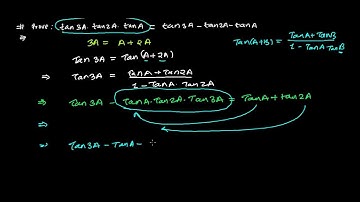 ⇒ Prove: tan3A. tan2A. tanA = tan3A - tan2A - tanA
⇒ 3A = A + 2A
Tan(A+B) = TanA + TanB / 1 - TanA TanB
Tan 3A = Tan(A + 2A)
⇒ Tan3A = TanA + Tan2A / 1 - TanA. Tan2A
⇒ Tan3A - TanA. Tan2A. Tan3A = TanA + tan2A
⇒
⇒ Tan3A - TanA -